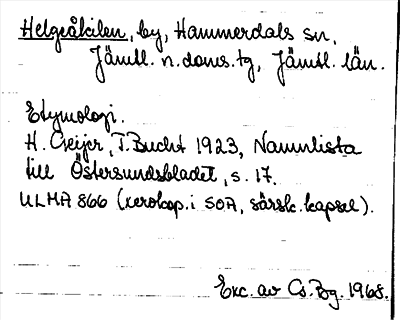 Helgeåkilen, by, Hammerdals sn,
Jämtl. n. doms. tg, Jämtl. län.
Etymologi.
H. Geijer, T. Bucht 1923, Namnlista
till Östersundsbladet, s. 17.
ULMA 866 (xerokop. i SOA, särsk. kapsel).
Exc. av Cs. Bg. 1968.